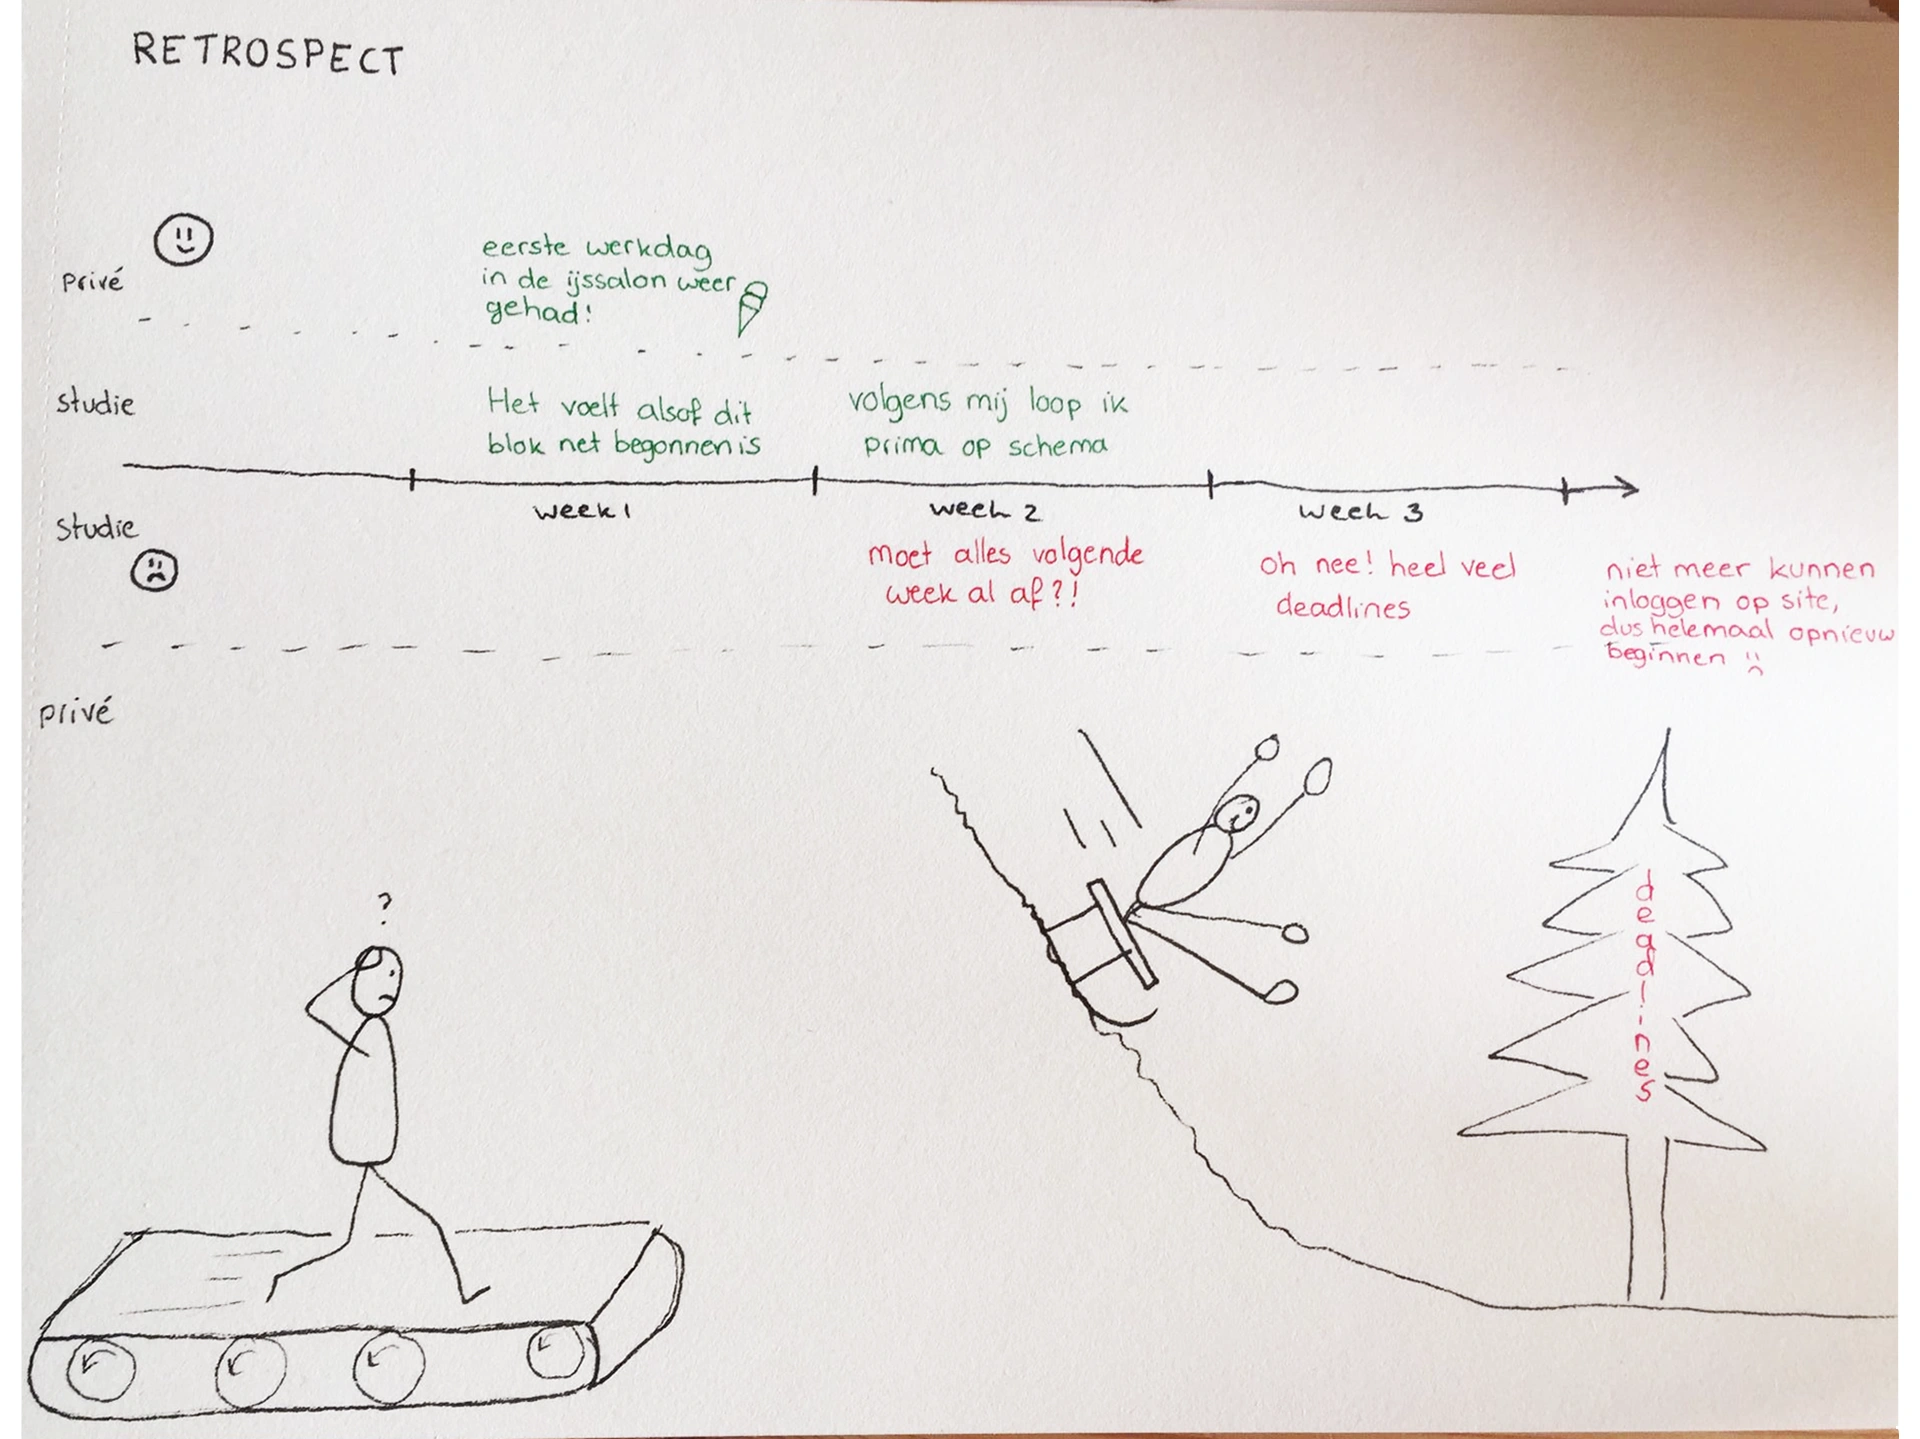 RETROSPECT
privé
eerste werkdag
in de ijssalon weer
gehad!
studie
Het voelt alsof dit
blok net begonnen is
volgens mij loop ik
prima op schema
week 1
week 2
week 3
studie
moet alles volgende
week al af?!
oh nee! heel veel
deadlines
niet meer kunnen
inloggen op site,
dus helemaal opnieuw
beginnen
privé
?
deadlines